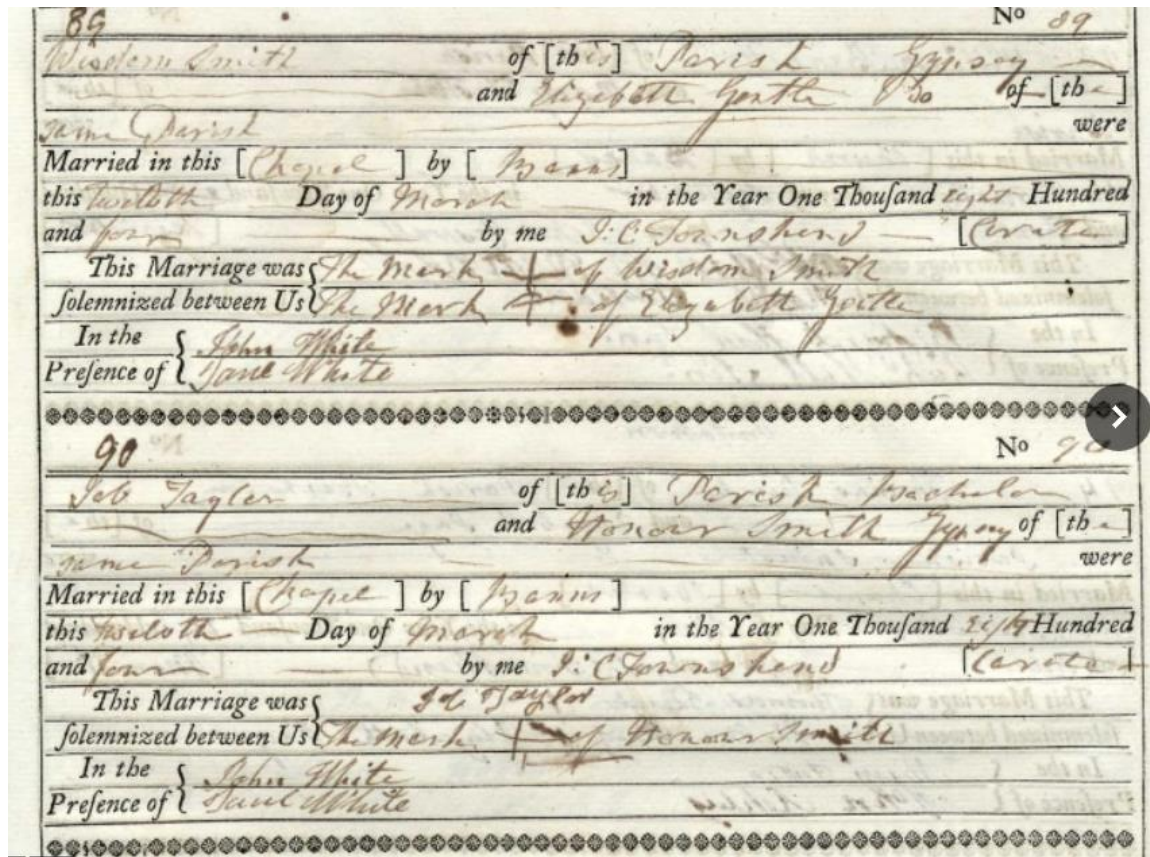 89 No 89
Wisdom Smith of [this] Parish Gypsey
and Elizabeth Gentle Do of [the]
same Parish were
Married in this [Chapel] by [Banns]
this tweloth Day of March in the Year One Thouſand eight Hundred
and four by me J: C Townshend [Curate]
This Marriage was The Mark + of Wisdom Smith
ſolemnized between Us The Mark + of Elizabeth Gentle
In the John White
Preſence of Jane White
90 No 90
Job Taylor of [this] Parish Bachelor
and Honour Smith Gypsey of [the]
same Parish were
Married in this [Chapel] by [Banns]
this tweloth Day of March in the Year One Thouſand eight Hundred
and four by me J: C Townshend [Curate]
This Marriage was Job Taylor
ſolemnized between Us The mark + of Honour Smith
In the John White
Preſence of Jane White